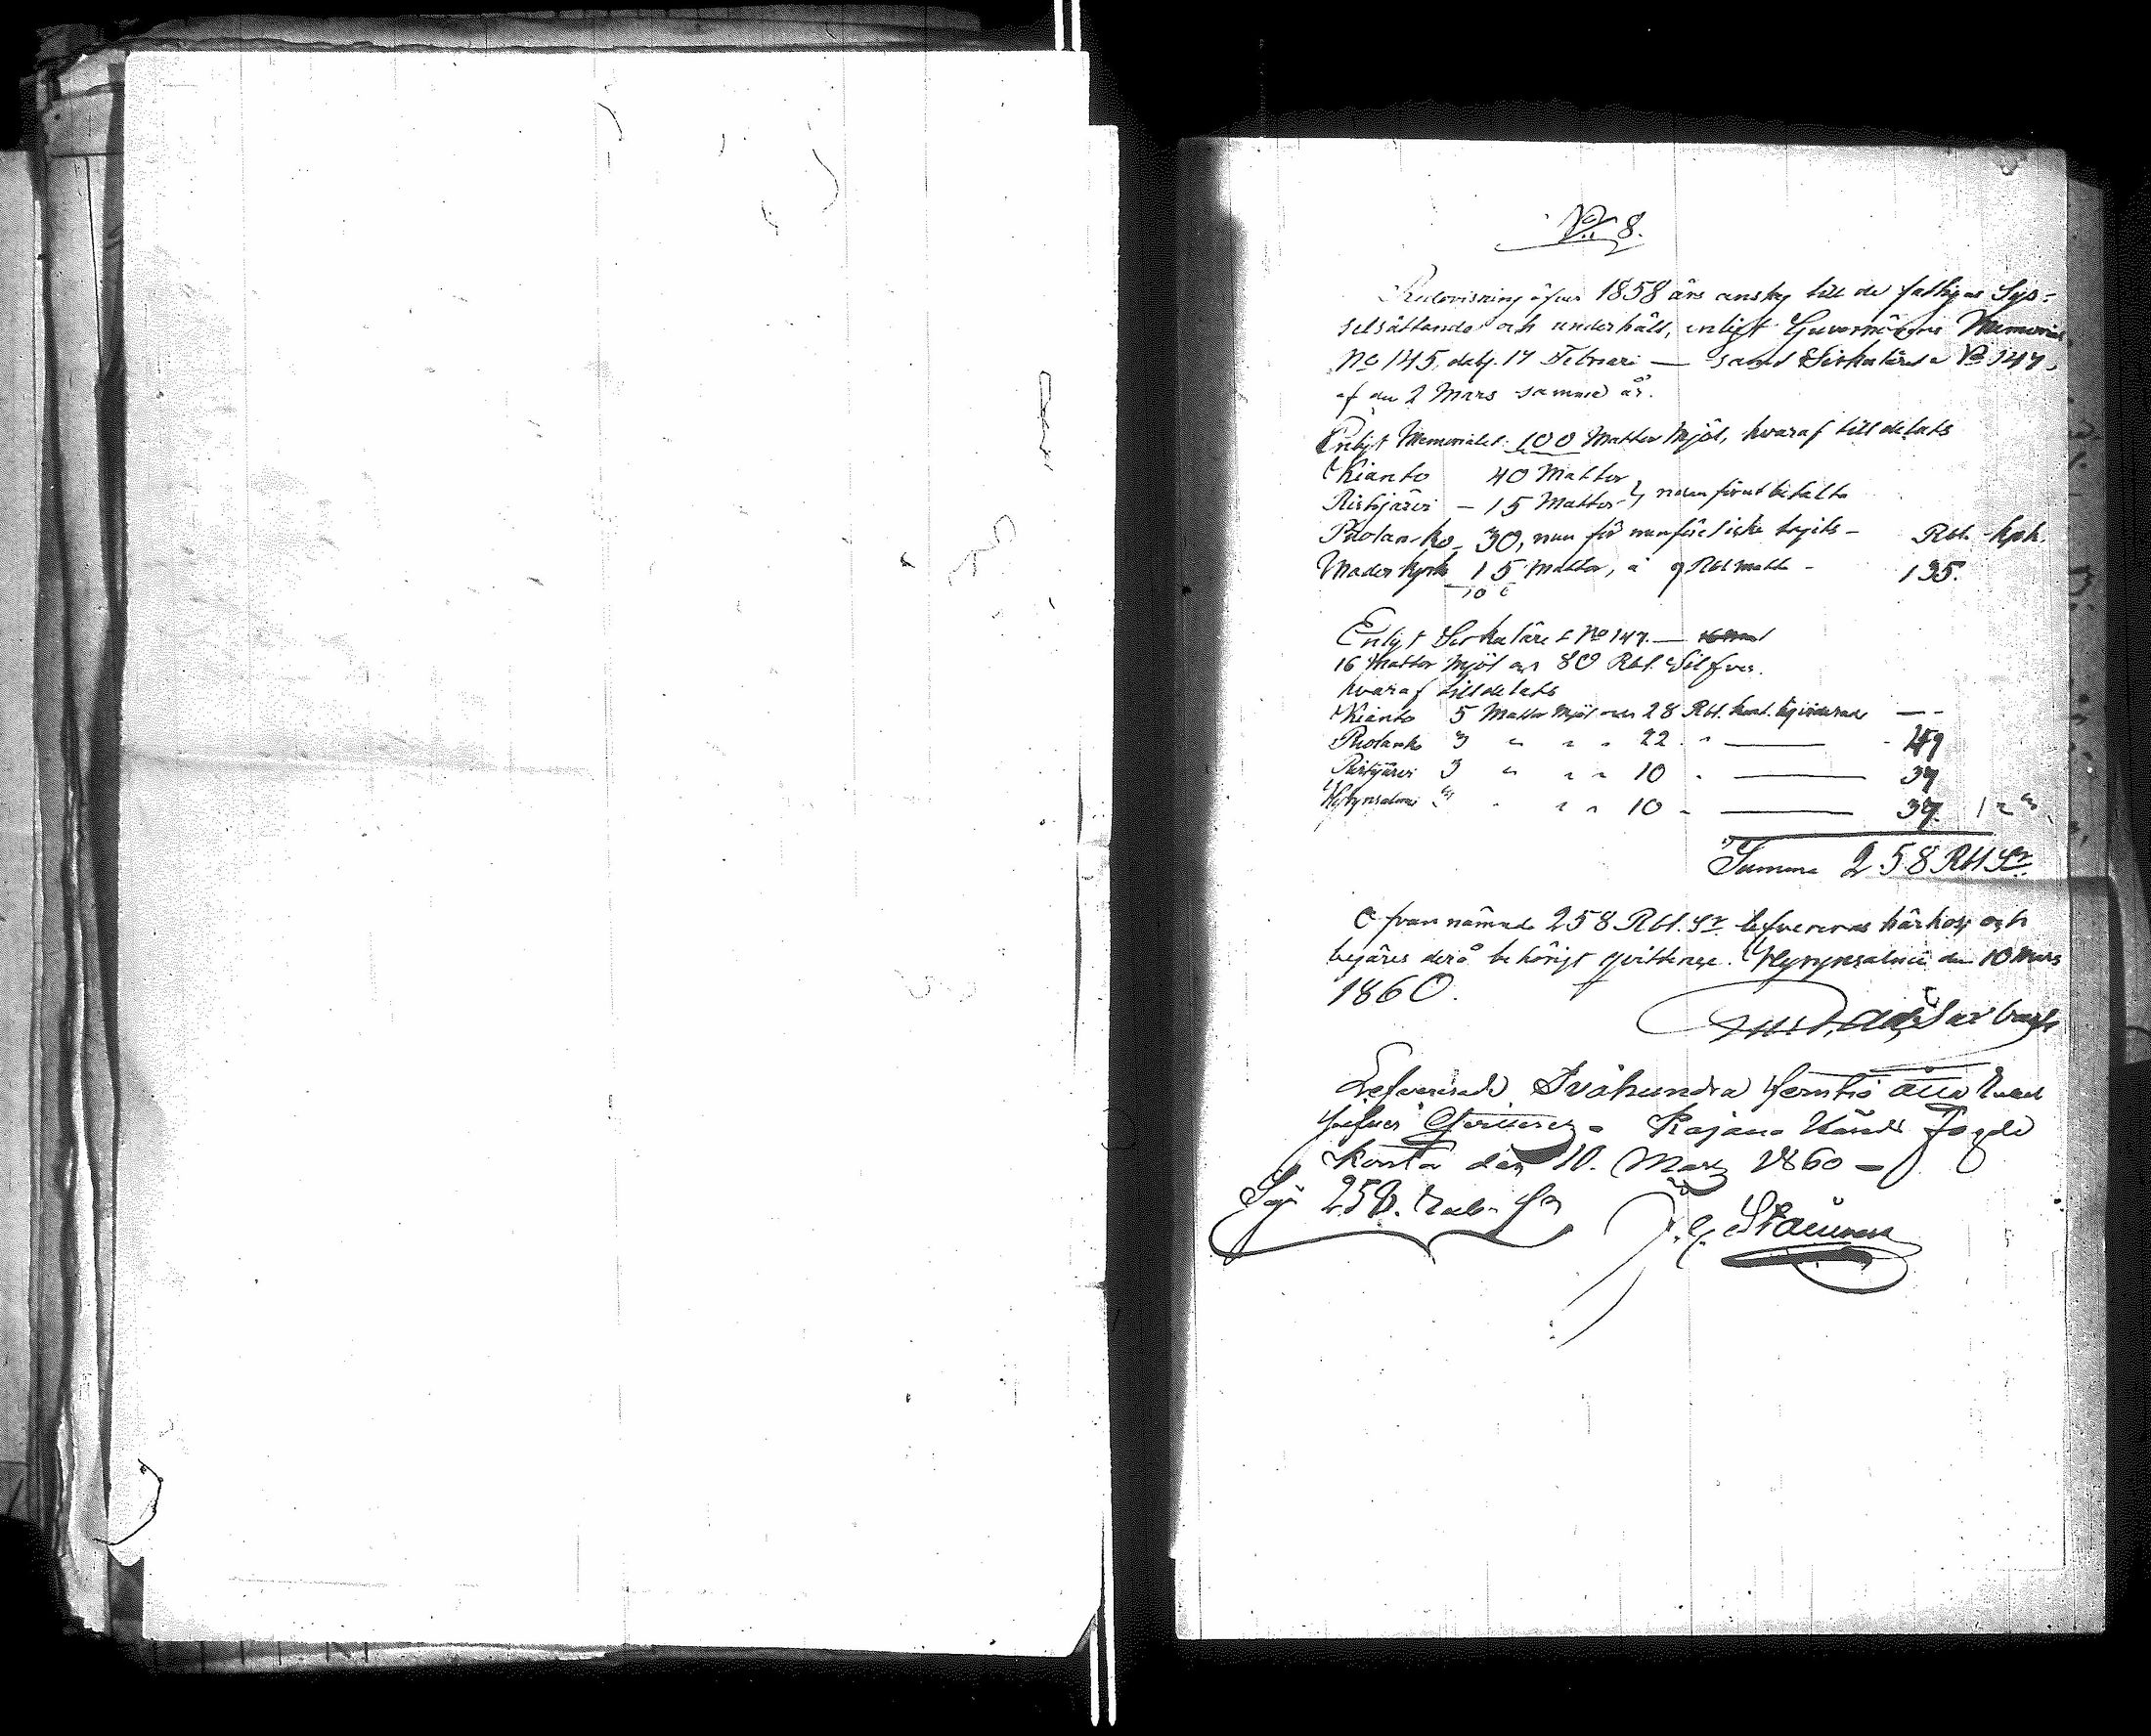 No 8.
Redovisning öfver 1858 års anslag till de fattigas Sys-
selsättande och underhåll, enligt Guvernörens Memorial
No 145, det. 17 Februari — samt Sirkuläret No 147,
af den 2 Mars samma år.
Enligt Memorialet 100 Mattor Mjöl, hvaraf tilldelats
Kianto 40 Mattor
Ristijärvi — 15 Mattor } redan förut betalta
Puolanko — 30, Rbl. Kpk.
Moderkyrk 15 Mattor, á 9 Rbl matt — 135.
Enligt Sirkuläret No 147. —
16 Mattor Mjöl och 80 Rbl. Silfver.
hvaraf tilldelats
Kianto 5 Mattor Mjöl och 28 Rbl. — —
Puolanko 3 " " " 22 " — 49
Ristijärvi 3 " " " 10 " — 37
Hyrynsalmi " " " 10 " — 37.
Summa 258 Rbl Sr
Ofvannämnde 258 Rbl. Sr. lefvereras härhos och
begäres derå behörigt qvittence. Hyrynsalmi den 10 Mars
1860.
Lefvererade Tvåhundra femtio åtta Rubel
Silfver qvitteras — Kajana Härads Fogde
Kontor den 10. Mars 1860 —
Säg 258. Rub. Sr